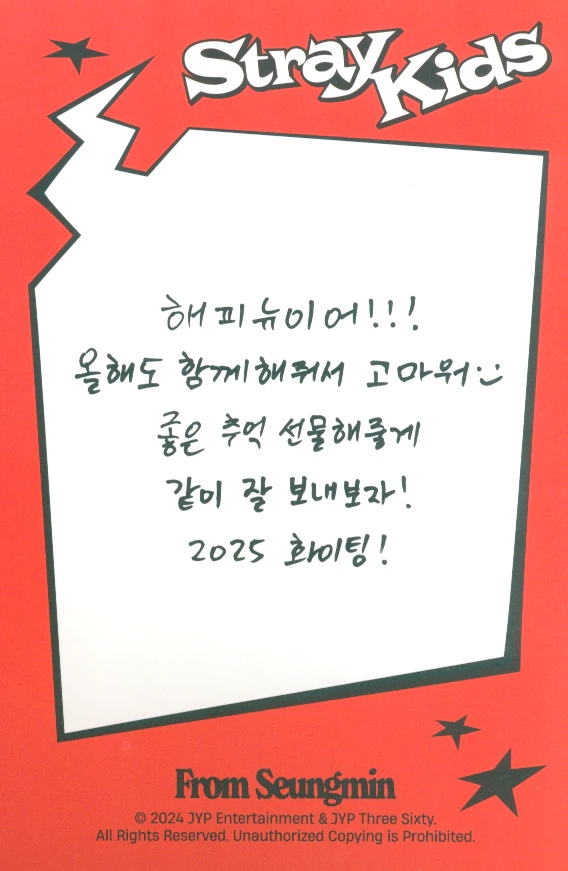 Stray Kids
해피뉴이어!!!
올해도 함께해줘서 고마워:)
좋은 추억 선물해줄게
같이 잘 보내보자!
2025 화이팅!
From Seungmin
© 2024 JYP Entertainment & JYP Three Sixty.
All Rights Reserved. Unauthorized Copying is Prohibited.